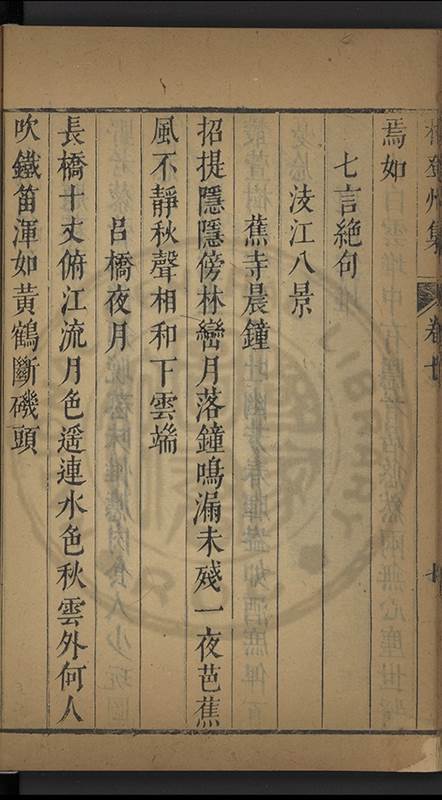 焉如
七言絶句
淩江八景
蕉寺晨鐘
招提隱隱傍林巒月落鐘鳴漏未殘一夜芭蕉
風不靜秋聲相和下雲端
吕橋夜月
長橋十丈俯江流月色遥連水色秋雲外何人
吹鐵笛渾如黄鶴斷磯頭